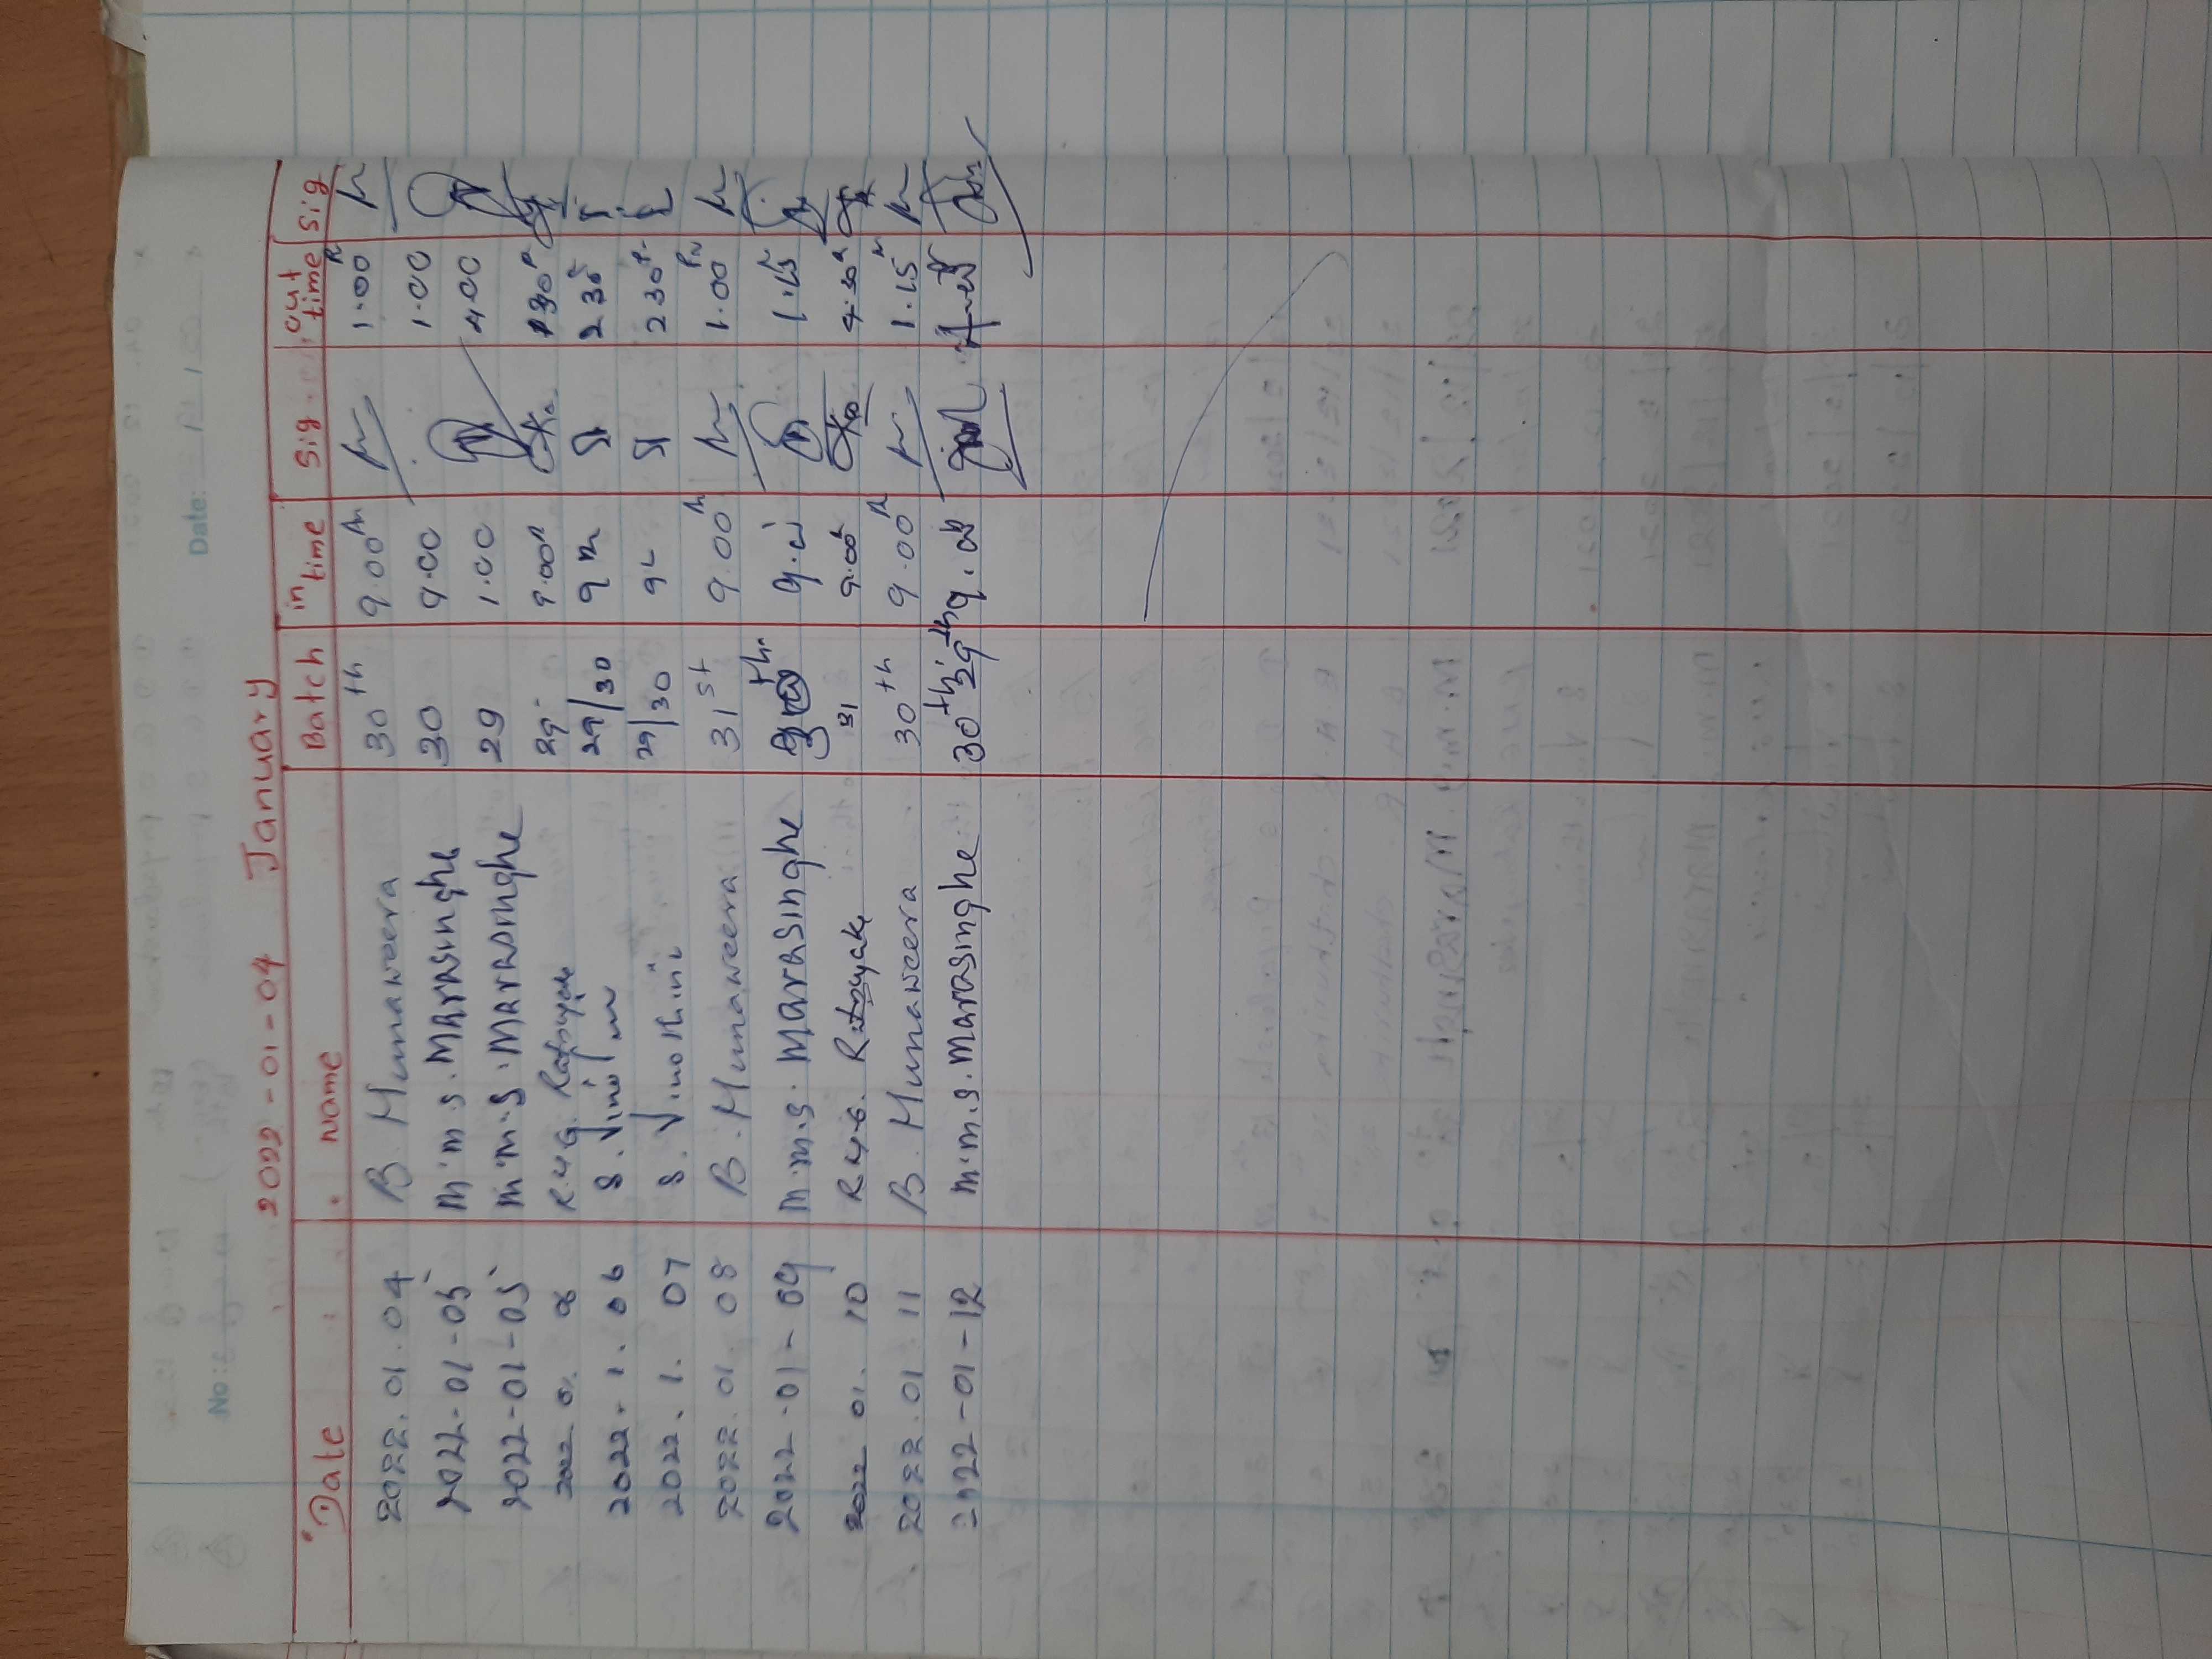 No: Date:
2022-01-04 January
Date name Batch in time Sig out time Sig
2022.01.04 B. Hunaweera 30th 9.00 1.00
2022-01-05 m.m.s. Marasinghe 30 9.00 1.00
2022-01-05 m.m.s. Marasinghe 29 1.00 4.00
2022 01. 06 29 9.00
2022.1.06 29/30 9 2 30
2022.1.07 S. Vinothini 29/30 9 2 30
2022.01.08 B. Hunaweera 31st 9.00 1.00
2022-01-09 m.m.s. Marasinghe 1.15
2022 01. 10 31 9.00 4.30
2022.01 11 B. Hunaweera 30th 9.00 1.15
2022-01-12 m.m.s. Marasinghe 30th 29th